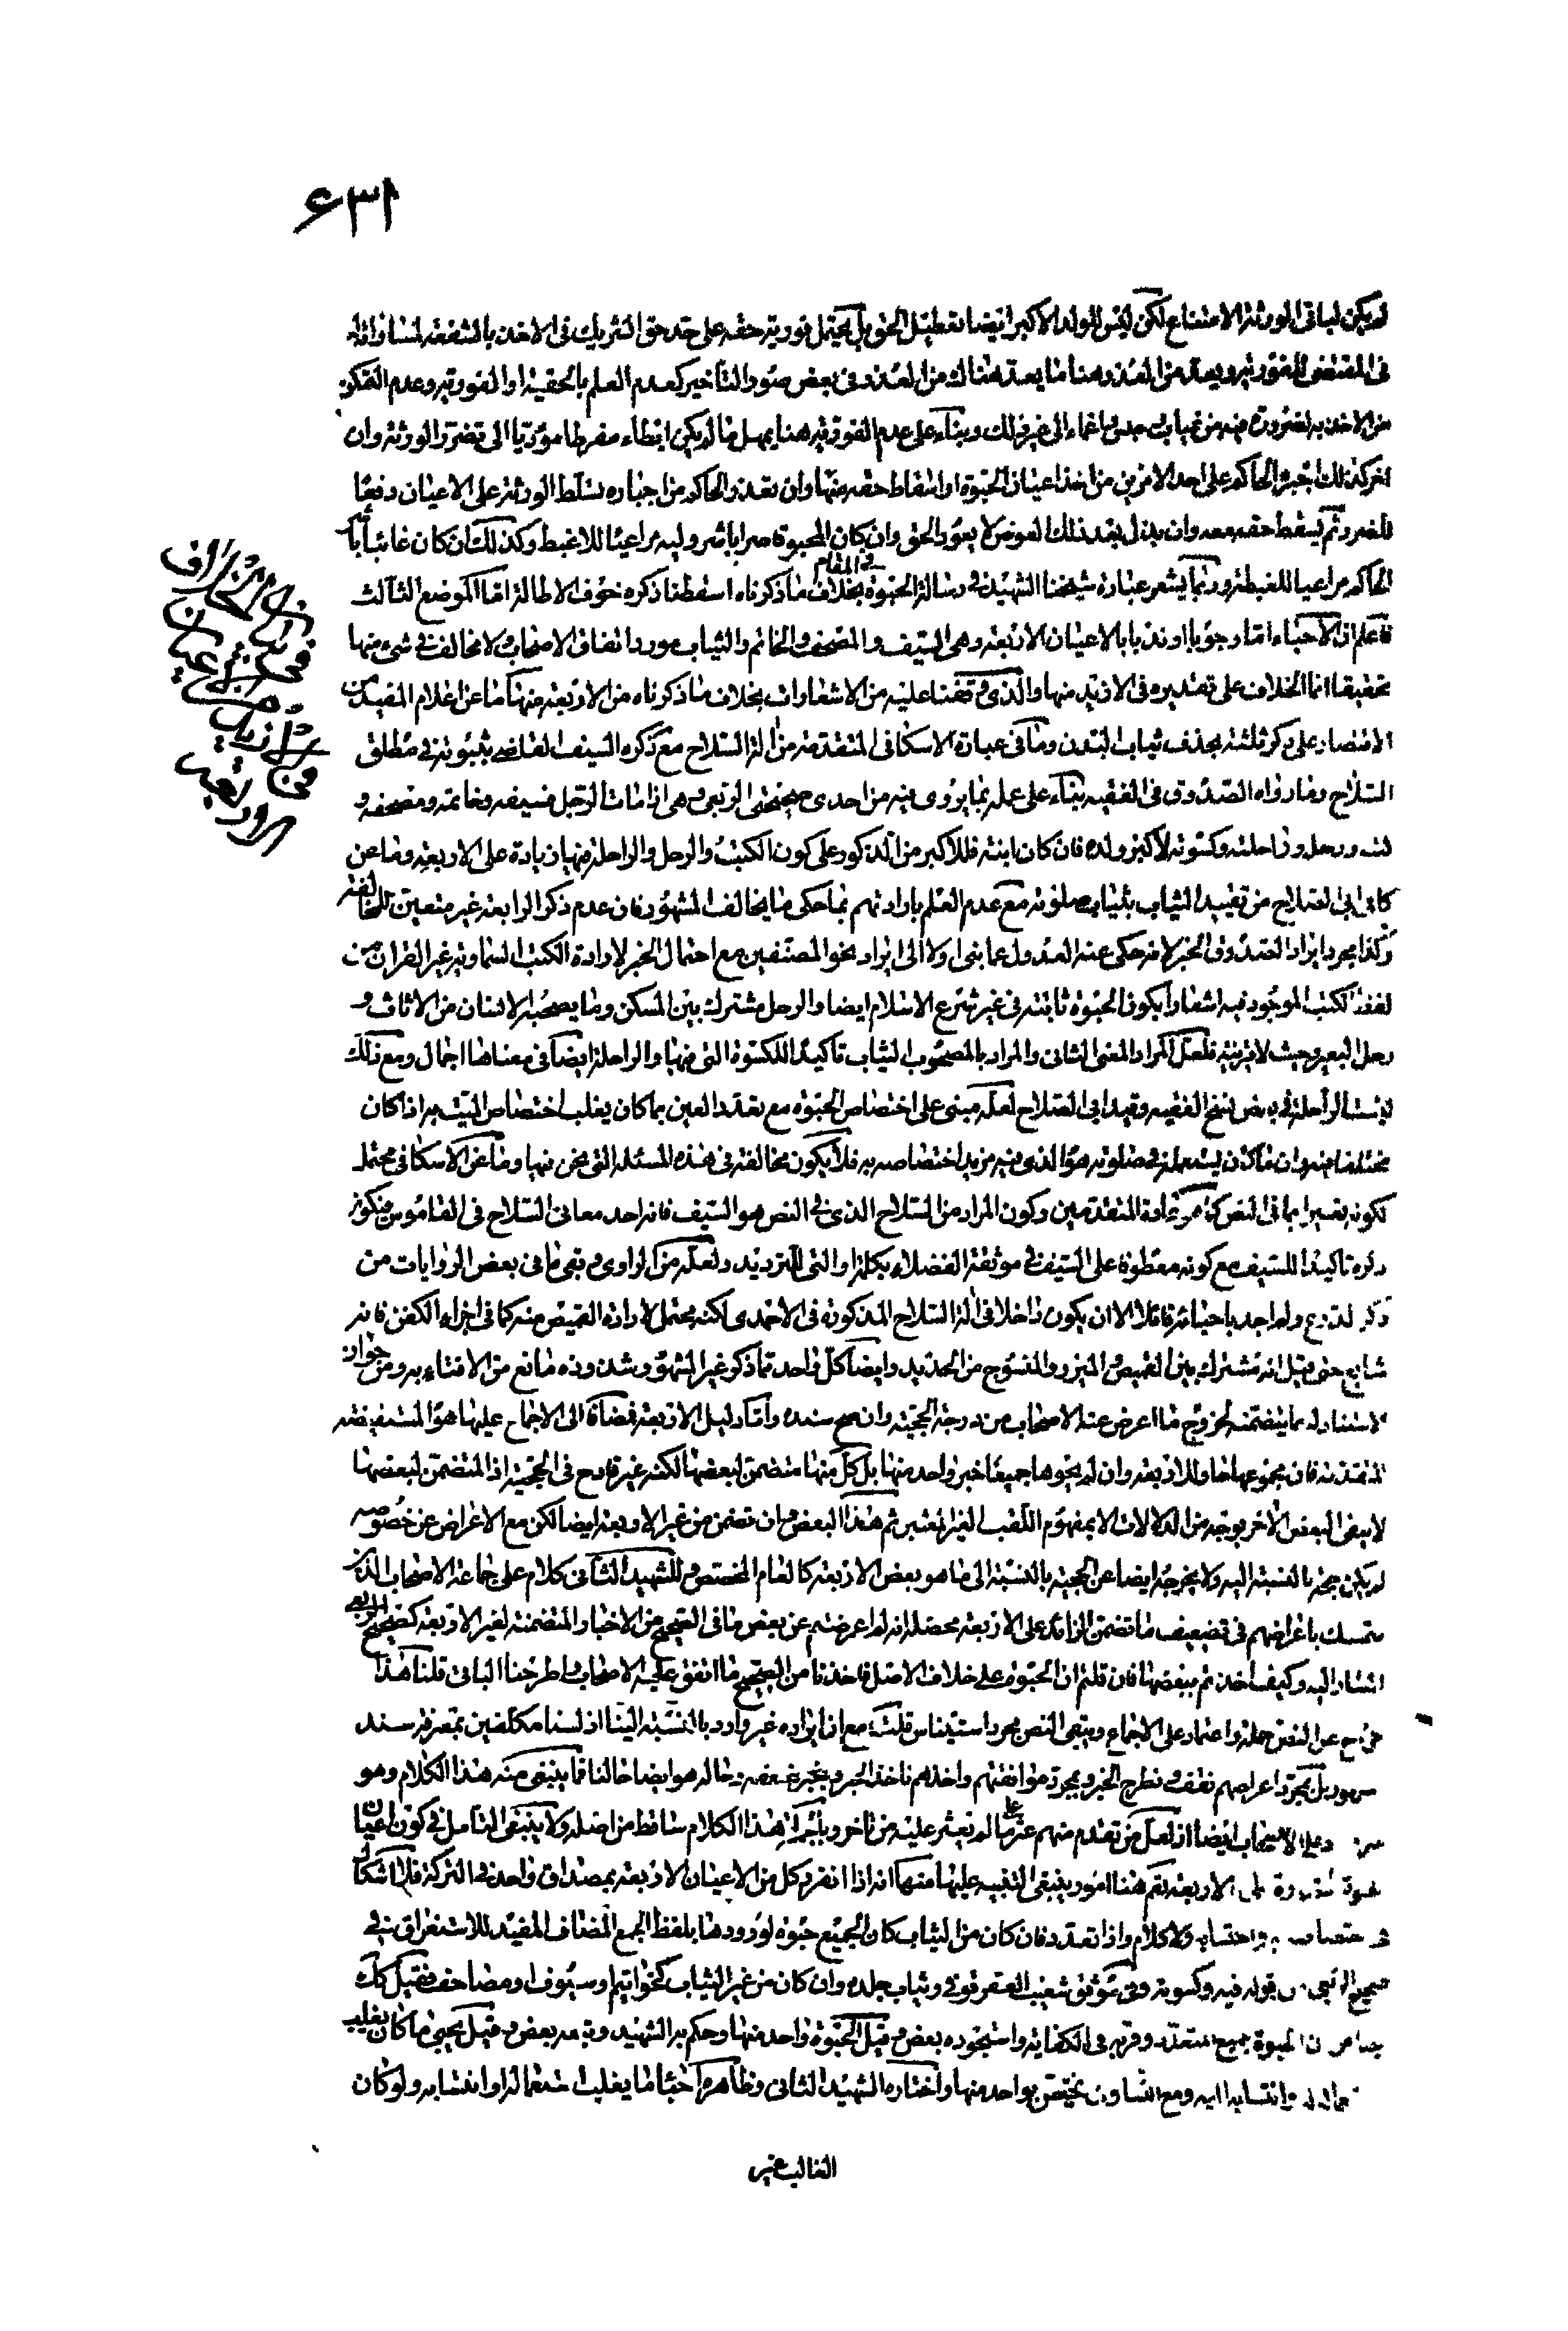 ٦٣١
لم يكن لباقي الورثة الامتناع لكن ليس للولد الاكبر ايضا تعطيل الحق بل يحتمل فورية حقه على حد حق الشريك في الاخذ بالشفعة لمساواته
في المقتضى للفورية ويعد من العذر هنا ما يعد هناك من العذر في بعض صور التأخير كعدم العلم بالحقية او الفورية وعدم التمكن
من الاخذ به لضرورة من غياب حبس واغماء الى غير ذلك وبناء على عدم الفورية هنا يمهل ما لم يكن ابطاء مفرطا مؤديا الى تضرر الورثة وان
اخر كذلك اجبره الحاكم على احد الامرين من اخذ اعيان الحبوة او اسقاط حقه منها وان تعذر الحاكم من اجباره تسلط الورثة على الاعيان دفعا
للضرر ثم يسقط حقه معه وان بذل بعد ذلك العوض لا يعود الحق وان كان المحبو قاصرا باشر وليه مراعيا للاغبط وكذلك ان كان غائبا باشر
الحاكم مراعيا للغبطة وربما يشعر عبارة شيخنا الشهيد في رسالة الحبوة في المقام بخلاف ما ذكرناه اسقطنا ذكره خوف الاطالة اما الموضع الثالث
فاعلم ان الاحباء اما وجوبا او ندبا بالاعيان الاربعة وهي السيف والمصحف والخاتم والثياب مورد اتفاق الاصحاب لا مخالف في شيء منها
تحقيقا انما الخلاف على تقديره في الازيد منها والذي وقفنا عليه من الاشعارات بخلاف ما ذكرناه من الاربعة منها ما عن اعلام المفيد من
الاقتصار على ذكر ثلثة بحذف ثياب البدن وما في عبارة الاسكافي المتقدمة من آلة السلاح مع ذكره السيف القاضي بثبوته في مطلق
السلاح وما رواه الصدوق في الفقيه بناء على عمله بما يروى فيه من احدى صحيحتي الربعي وهي اذا مات الرجل فسيفه وخاتمه ومصحفه و
كتبه ورحله وراحلته وكسوته لاكبر ولده فان كان ابنته فللاكبر من الذكور على كون الكتب والرحل والراحلة فيها زيادة على الاربعة وما عن
كافي ابي الصلاح من تقييد الثياب بثياب صلوته مع عدم العلم بارادتهم بما حكى ما يخالف المشهور فان عدم ذكر الرابعة غير متعين للمخالفة
وكذا مجرد ايراد الصدوق الخبر لانه حكى عنه العدول عما بنى اولا الى ايراد نحو المصنفين مع احتمال الخبر لارادة الكتب السماوية غير القران من
لفظ الكتب الموجود فيه اشعارا بكون الحبوة ثابتة في غير شرع الاسلام ايضا والرحل مشترك بين المسكن وما يصحبه الانسان من الاثاث و
رحل البعير وحيث لا قرينة فلعل المراد المعنى الثاني والمراد بالمصحوب الثياب تأكيدا للكسوة التي فيها والراحلة ايضا في معناها اجمال ومع ذلك
ليست الراحلة في بعض نسخ الفقيه وقيد ابي الصلاح لعله مبني على اختصاص الحبوة مع تعدد العين بما كان يغلب اختصاص الميت به اذا كان
مختلفا فيه وان ما كان يستعمله في صلوته هو الذي فيه مزيد اختصاص به فلا يكون مخالفة في هذه المسئلة التي نحن فيها وما عن الاسكافي محتمل
لكونه تفسيرا بما في النص كما هو عادة المتقدمين وكون المراد من السلاح الذي في النص هو السيف فانه احد معاني السلاح في القاموس فيكون
ذكره تأكيدا للسيف مع كونه معطوفا على السيف في موثقة الفضلاء بكلمة او التي للترديد ولعله من الراوي وبقي ما في بعض الروايات من
ذكر الدرع ولم اجد باحبائه قائلا الا ان يكون داخلا في آلة السلاح المذكورة في الاحمدي لكنه محتمل لارادة القميص منه كما في اجزاء الكفن فانه
شايع حتى قيل انه مشترك بين القميص والمنسوج من الحديد وايضا كل واحد مما ذكر غير المشهور وشذوذه مانع من الافتاء به ومن جواز
الاستناد له بما يتضمنه لخروج ما اعرض عنه الاصحاب من درجة الحجية وان صح سنده واما دليل الاربعة فمضافا الى الاجماع عليها هو المستفيضة
المتقدمة فان مجموعها حاو للاربعة وان لم يحوها جميعا خبر واحد منها بل كل منها متضمن لبعضها لكنه غير قادح في الحجية اذ المتضمن لبعضها
لا ينفي البعض الآخر بوجه من الدلالات الا بمفهوم اللقب الغير المعتبر ثم هذا البعض وان تضمن من غير الاربعة ايضا لكن مع الاعراض عن خصوصه
لم يكن حجة بالنسبة اليه ولا يخرجه ايضا عن الحجية بالنسبة الى ما هو بعض الاربعة كالعام المخصص وللشهيد الثاني كلام على جماعة الاصحاب الذين
تمسك باعراضهم في تضعيف ما تضمن الزائد على الاربعة محصله انه لم اعرضتم عن بعض ما في الصحيح من الاخبار المتضمنة لغير الاربعة كصحيح الربعي
المشار اليه وكيف اخذتم ببعضها فان قلتم ان الحبوة على خلاف الاصل فاخذنا من الصحيح ما اتفق عليه الاصحاب واطرحنا الباقي قلنا هذا
خروج عن النص جملة واعتماد على الاجماع ويبقى النص مجرد استيناس قلت مع ان ايراده غير وارد بالنسبة الينا اذ لسنا مكلفين بمعرفة سند
بل بمجرد اعراضهم نقف ونطرح الخبر وبمجرد موافقتهم واخذهم ناخذ الخبر حاله هو ايضا حالنا فما ينبغي منه هذا الكلام وهو
على الاصحاب ايضا اذ لعل من تقدم منهم عثر على ما لم يعثر عليه من تاخر وبالجملة هذا الكلام ساقط من اصله ولا ينبغي التأمل في كون اعيان
الاربعة نعم هنا امور ينبغي التنبيه عليها منها انه اذا انفرد كل من الاعيان الاربعة بمصداق واحد في التركة فلا اشكال
ولا كلام واذا تعدد فان كان من الثياب كان الجميع حبوة لورودها بلفظ الجمع المضاف المفيد للاستغراق في
صحيح الربعي قوله فيه وكسوته وفي موثق شعيب العقرقوفي وثياب جلده وان كان من غير الثياب كخواتيم او سيوف او مصاحف فقيل كك
جميع المتعدد وقربه في الكفاية واستجوده بعض وقيل الحبوة واحد منها وحكم به الشهيد وتبعه بعض وقيل يحبى ما كان يغلب
وانتسابه اليه ومع التساوي يختص بواحد منها واختاره الشهيد الثاني وظاهره احباء ما يغلب استعماله او انتسابه ولو كان
الغالب غير